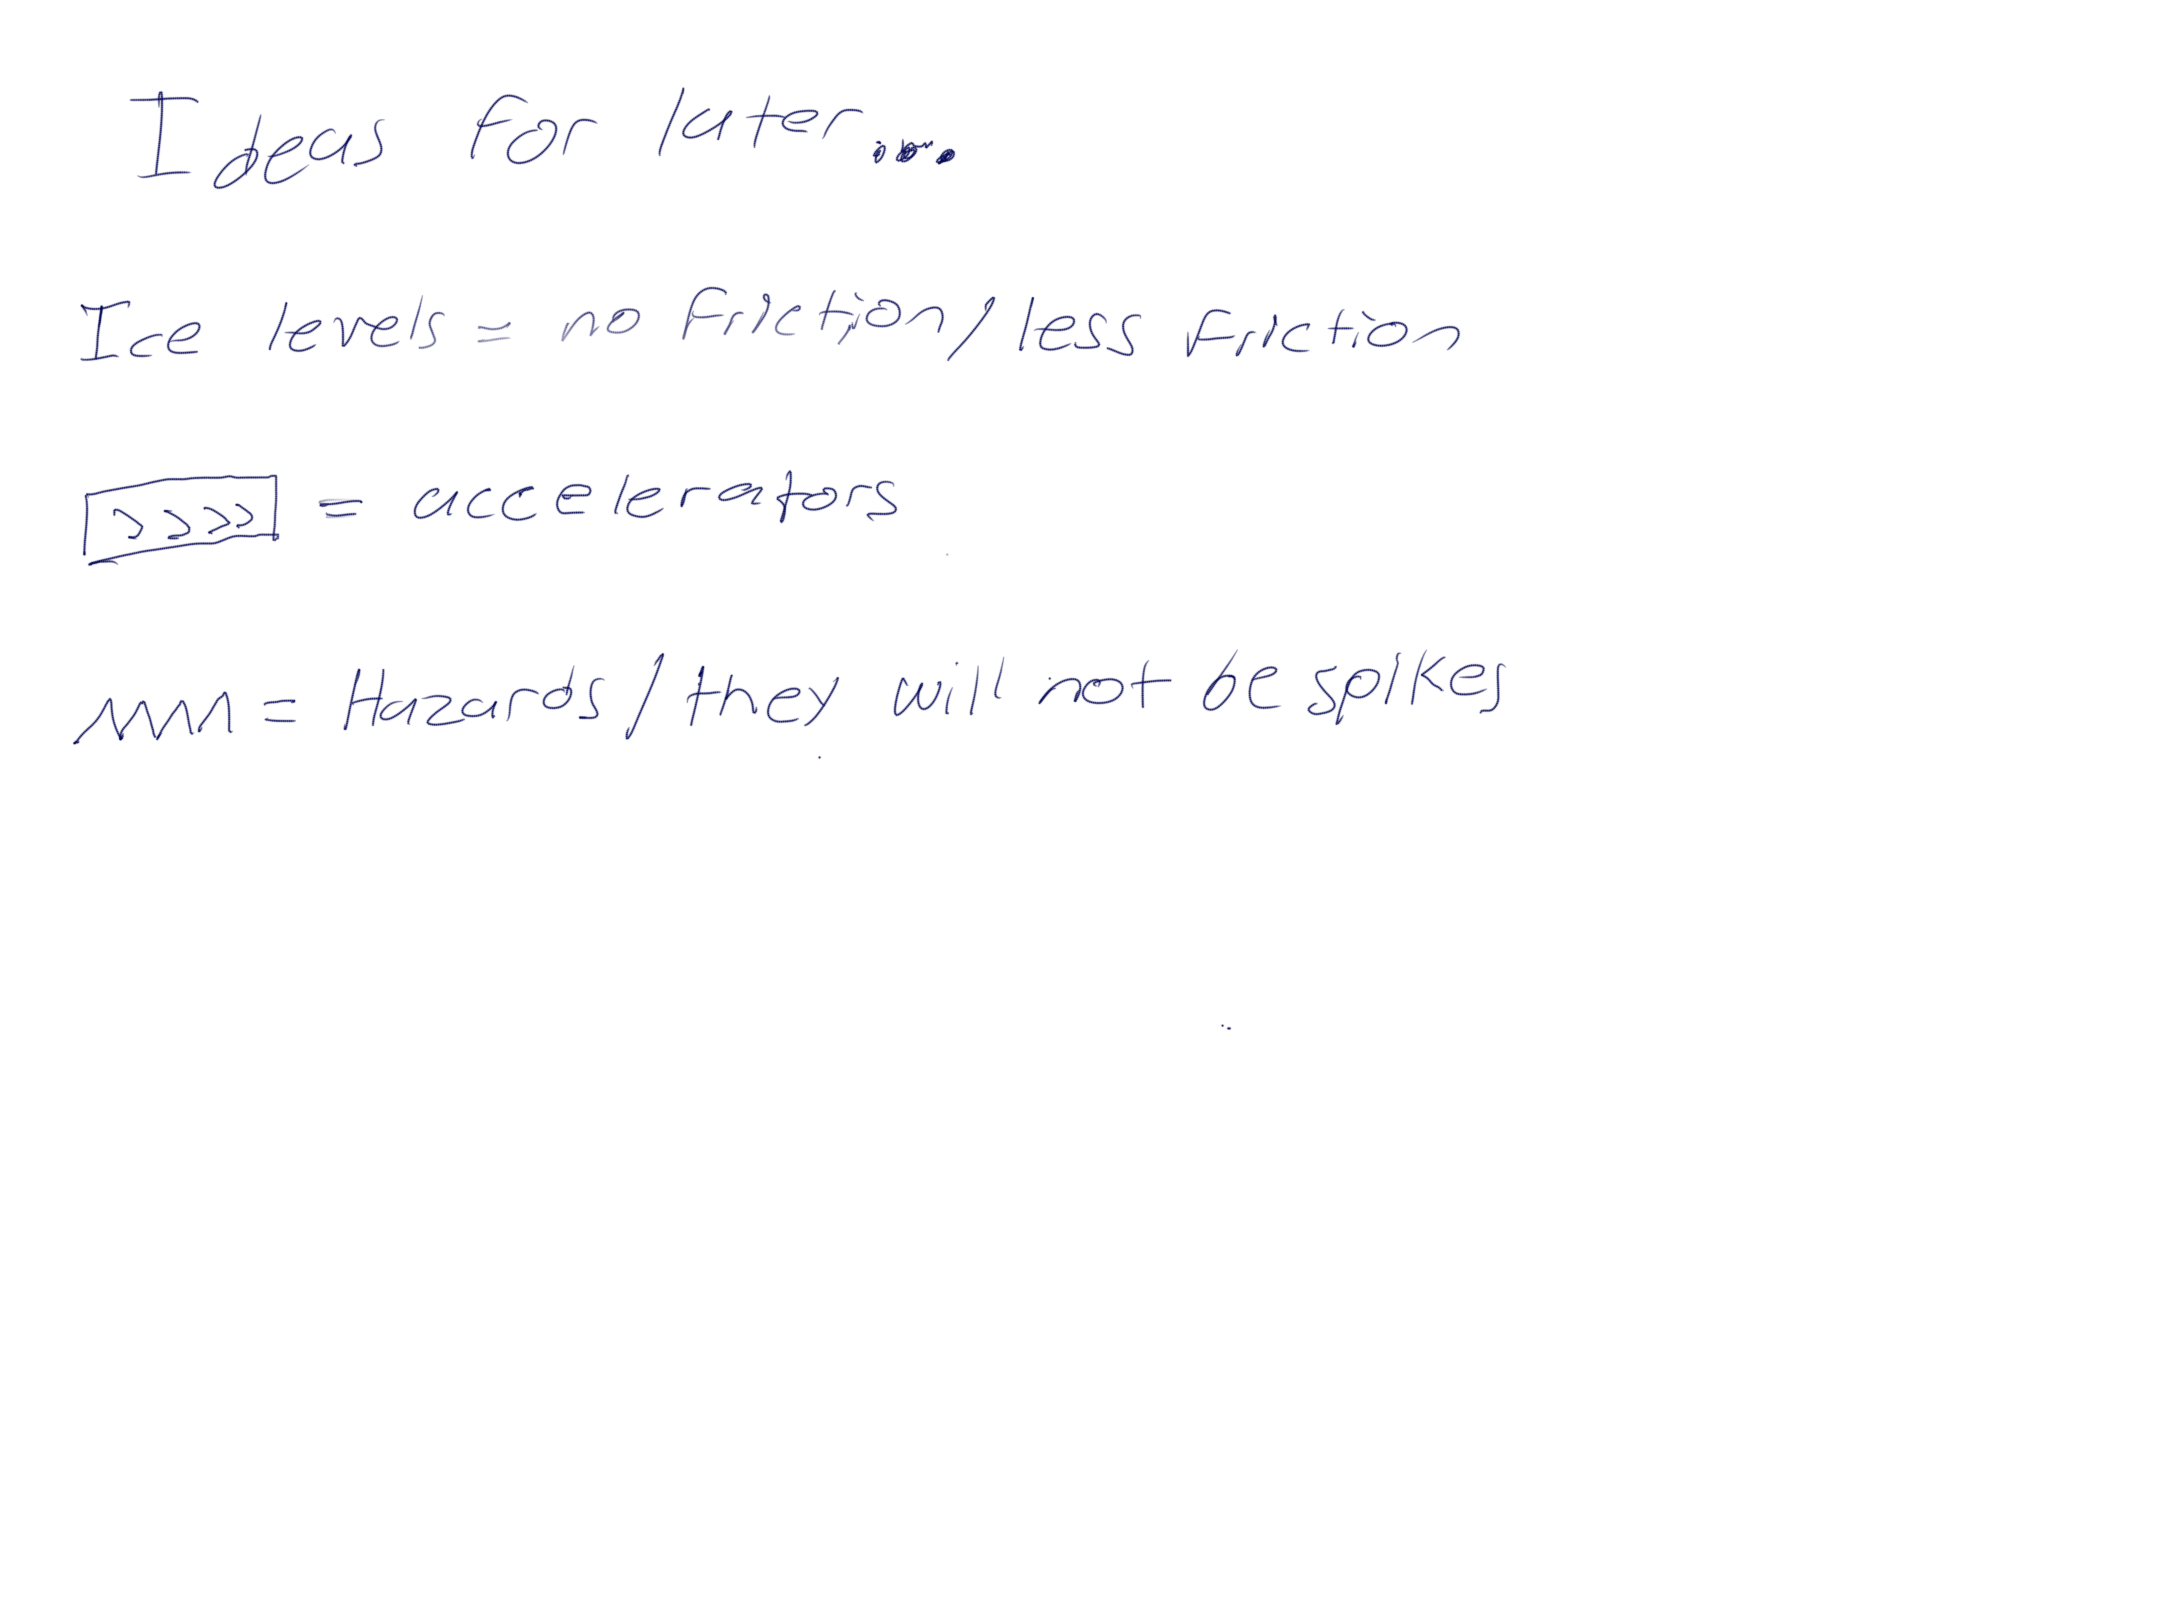 Ideas for later...
Ice levels = no friction/less friction
>>>> = accelerators
= Hazards/they will not be spikes